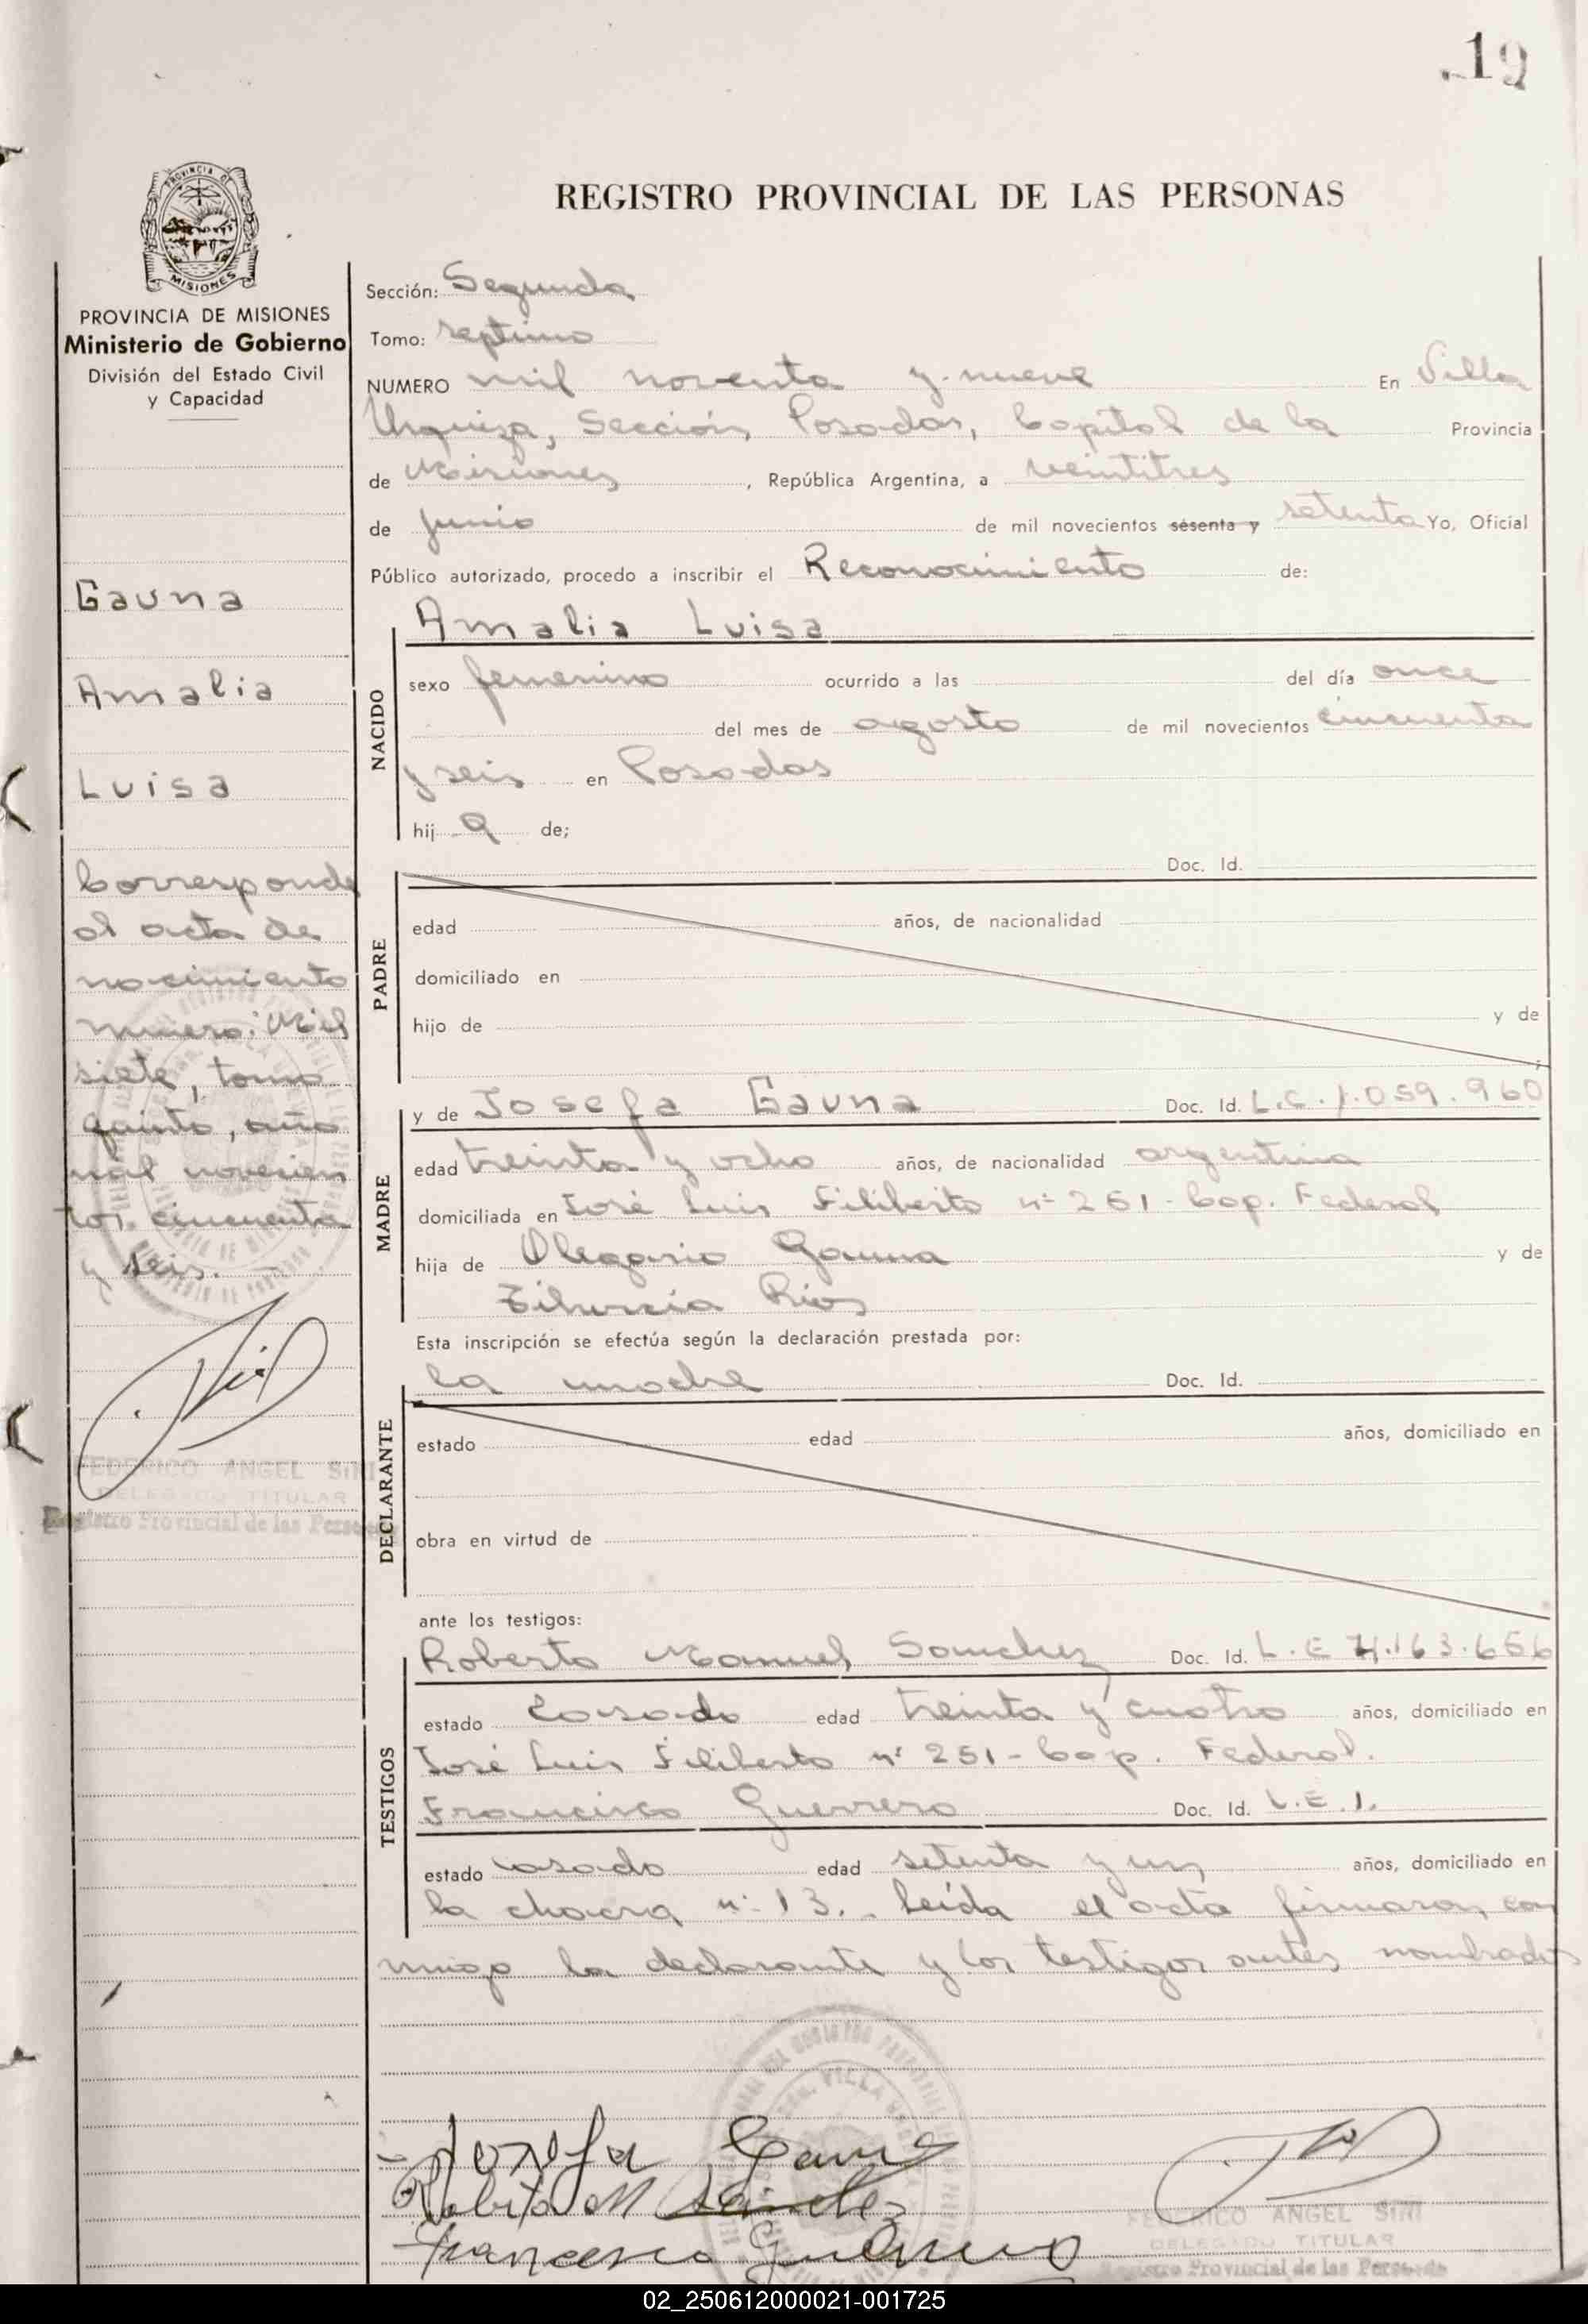 .19
REGISTRO PROVINCIAL DE LAS PERSONAS
PROVINCIA DE
MISIONES
PROVINCIA DE MISIONES
Ministerio de Gobierno
División del Estado Civil
y Capacidad
Gauna
Amalia
Luisa
Corresponde
al acta de
nacimiento
número: Mil
siete, tomo
quinto, año
mil novecien
tos cincuenta
y seis.
FEDERICO ANGEL SIRI
DELEGADO TITULAR
Registro Provincial de las Personas
Sección: Segunda
Tomo: septimo
NUMERO mil noventa y nueve En Villa
Urquiza, Sección Posadas, Capital de la Provincia
de Misiones, República Argentina, a veintitres
de junio de mil novecientos sesenta y setenta Yo, Oficial
Público autorizado, procedo a inscribir el Reconocimiento de:
Amalia Luisa
NACIDO
sexo femenino ocurrido a las del día once
del mes de agosto de mil novecientos cincuenta
y seis en Posadas
hij a de;
PADRE
Doc. Id.
edad años, de nacionalidad
domiciliado en
hijo de y de
MADRE
y de Josefa Gauna Doc. Id. L.C. 1.059.960
edad treinta y ocho años, de nacionalidad argentina
domiciliada en José Luis Filiberto nº 251 - Cap. Federal
hija de Olegario Gauna y de
Tiburcia Rios
Esta inscripción se efectúa según la declaración prestada por:
DECLARANTE
la madre Doc. Id.
estado edad años, domiciliado en
obra en virtud de
ante los testigos:
TESTIGOS
Roberto Manuel Sanchez Doc. Id. L.E 4.163.656
estado casado edad treinta y cuatro años, domiciliado en
José Luis Filiberto nº 251 - Cap. Federal.
Francisco Guerrero Doc. Id. L.E.1.
estado casado edad setenta y un años, domiciliado en
la chacra nº 13. Leída el acta firmaron con
migo la declarante y los testigos antes nombrados
Josefa Gauna
Roberto M Sanchez
Francisco Guerrero
FEDERICO ANGEL SIRI
DELEGADO TITULAR
Registro Provincial de las Personas
02_250612000021-001725